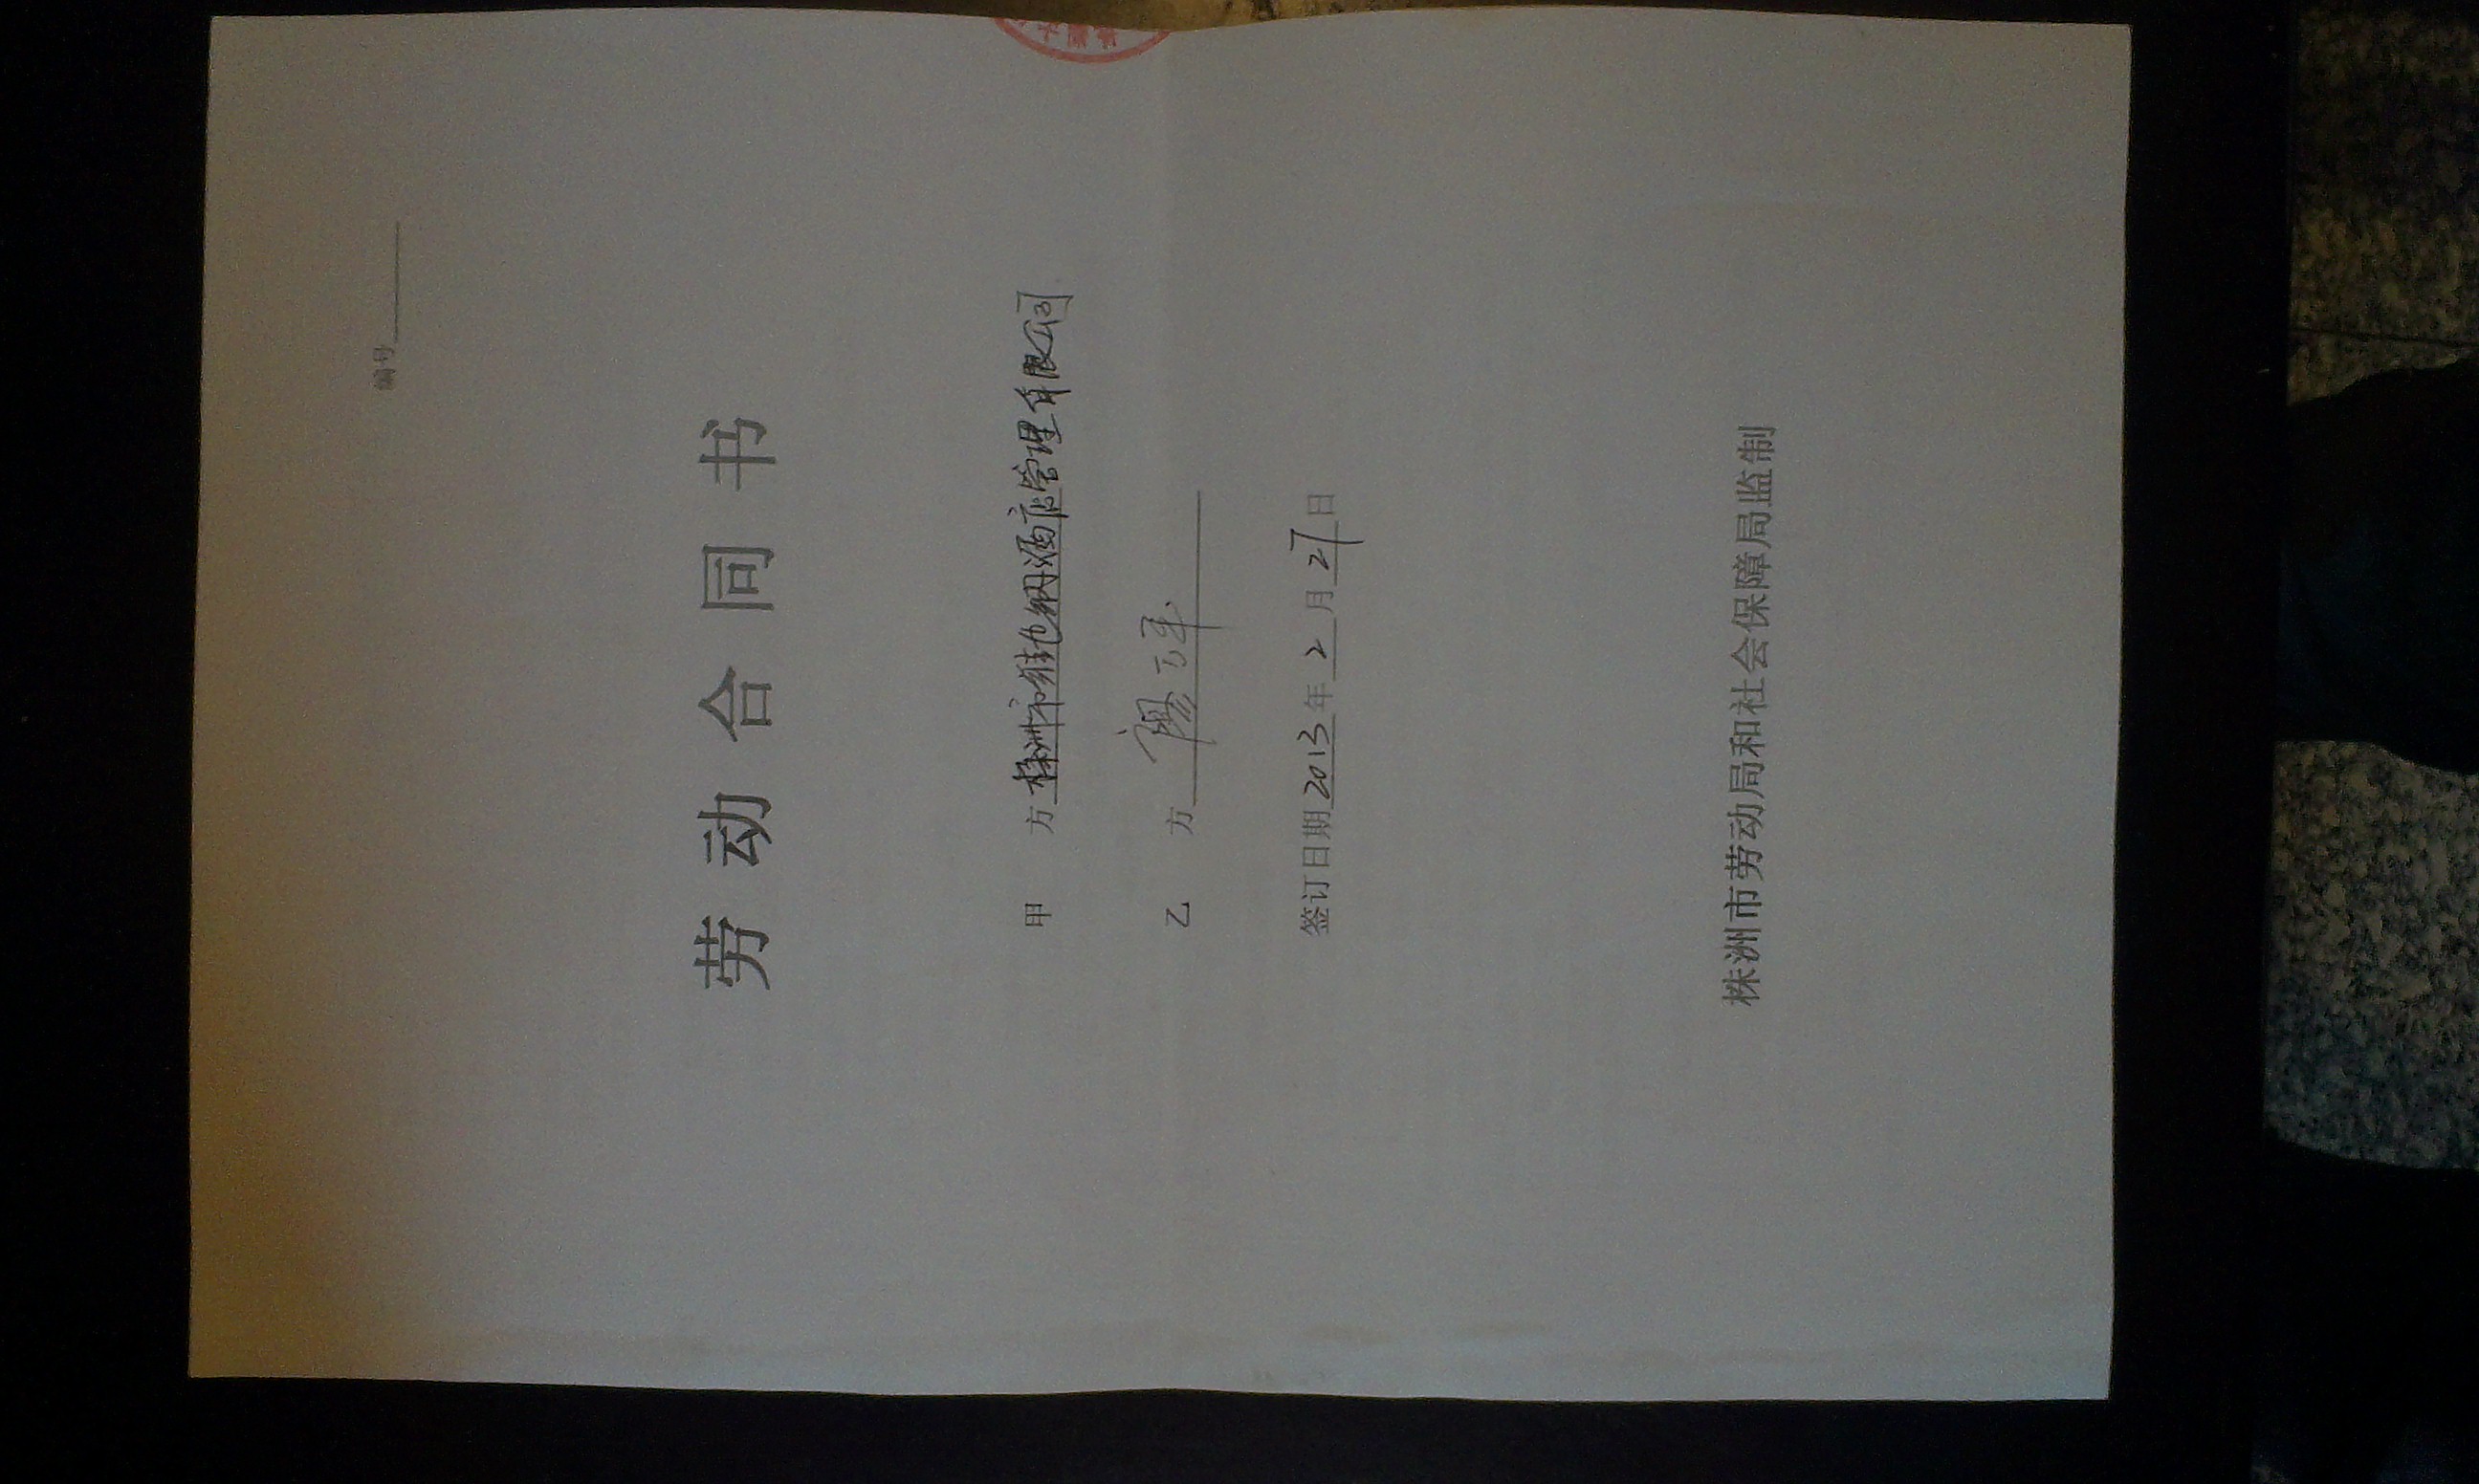 编号
劳动合同书
甲 方 株洲市维也纳酒店管理有限公司
乙 方
签订日期 2013 年 2 月 27 日
株洲市劳动局和社会保障局监制